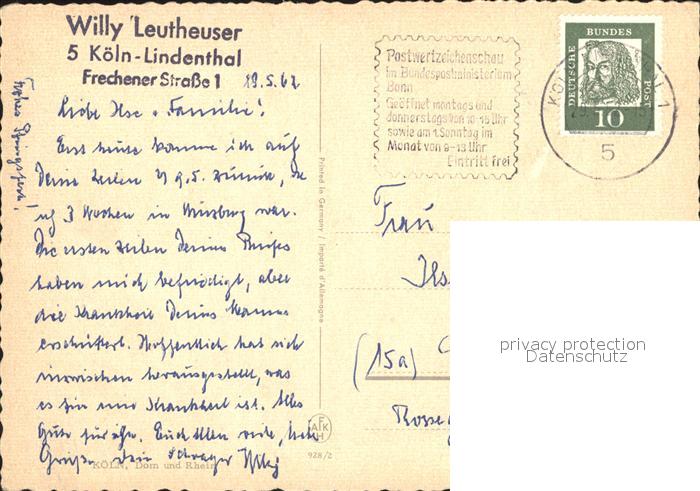 Willy Leutheuser
5 Köln-Lindenthal
Frechener Straße 1
19.5.62
Frohes Pfingstfest!
Liebe Ilse u. Familie!
Erst heute komme ich auf
Deine Zeilen v. 9.5. zurück, da
ich 3 Wochen in Würzburg war.
Die ersten Zeilen Deines Briefes
haben mich befriedigt, aber
die Krankheit Deines Mannes
erschüttert. Hoffentlich hat sich
inzwischen herausgestellt, was
es für eine Krankheit ist. Alles
Gute für ihn. Euch Allen viele, liebe
Grüße Dein Schwager Willy
KÖLN, Dom und Rhein
Printed in Germany / Importé d'Allemagne
AFKH
928/2
Postwertzeichenschau
im Bundespostministerium
Bonn
Geöffnet montags und
donnerstags von 10-16 Uhr
sowie am 1. Sonntag im
Monat von 9-13 Uhr
Eintritt frei
DEUTSCHE BUNDES POST
10
5
Frau
Ils
(15a)
privacy protection
Datenschutz